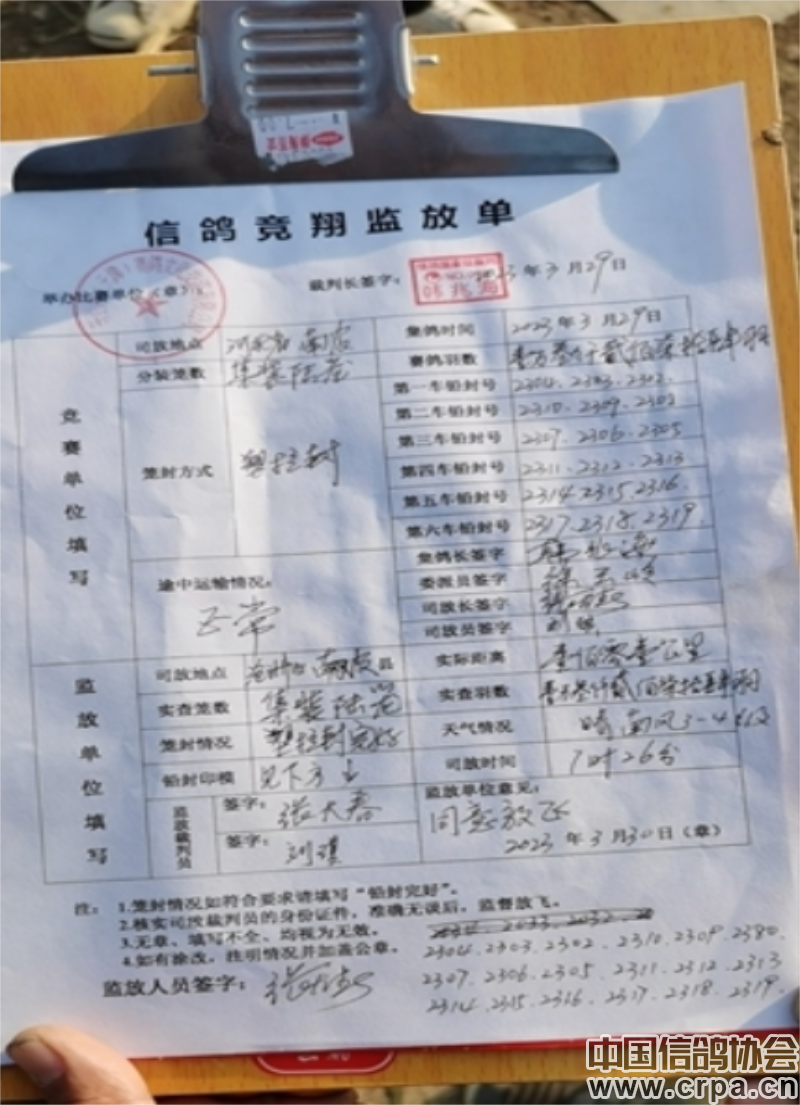 信鸽竞翔监放单
举办比赛单位(章):
裁判长签字:
2023年3月29日
竞赛单位填写
司放地点
集鸽时间 2023年3月29日
分装笼数 集装陆笼
赛鸽羽数
笼封方式 塑拉封
第一车铅封号 2304.2303.2302.
第二车铅封号 2310.2309.2302
第三车铅封号 2307.2306.2305
第四车铅封号 2311.2312.2313
第五车铅封号 2314.2315.2316.
第六车铅封号 2317.2318.2319.
途中运输情况: 正常
集鸽长签字
委派员签字
司放长签字
司放员签字
监放单位填写
司放地点 南皮县
实际距离 壹佰零壹公里
实查笼数 集装陆笼
实查羽数
笼封情况 塑拉封完好
天气情况 晴南风3-4级
铅封印模 见下方
司放时间 7时26分
监放裁判员
签字: 张大春
签字:
监放单位意见:
同意放飞
2023年3月30日(章)
注: 1.笼封情况如符合要求请填写“铅封完好”。
2.核实司放裁判员的身份证件,准确无误后,监督放飞。
3.无章、填写不全、均视为无效。
4.如有涂改,注引情况并加盖公章。
2304.2303.2302.2310.2309.2380.
2307.2306.2305.2311.2312.2313
2314.2315.2316.2317.2318.2319.
监放人员签字:
中国信鸽协会
www.crpa.cn